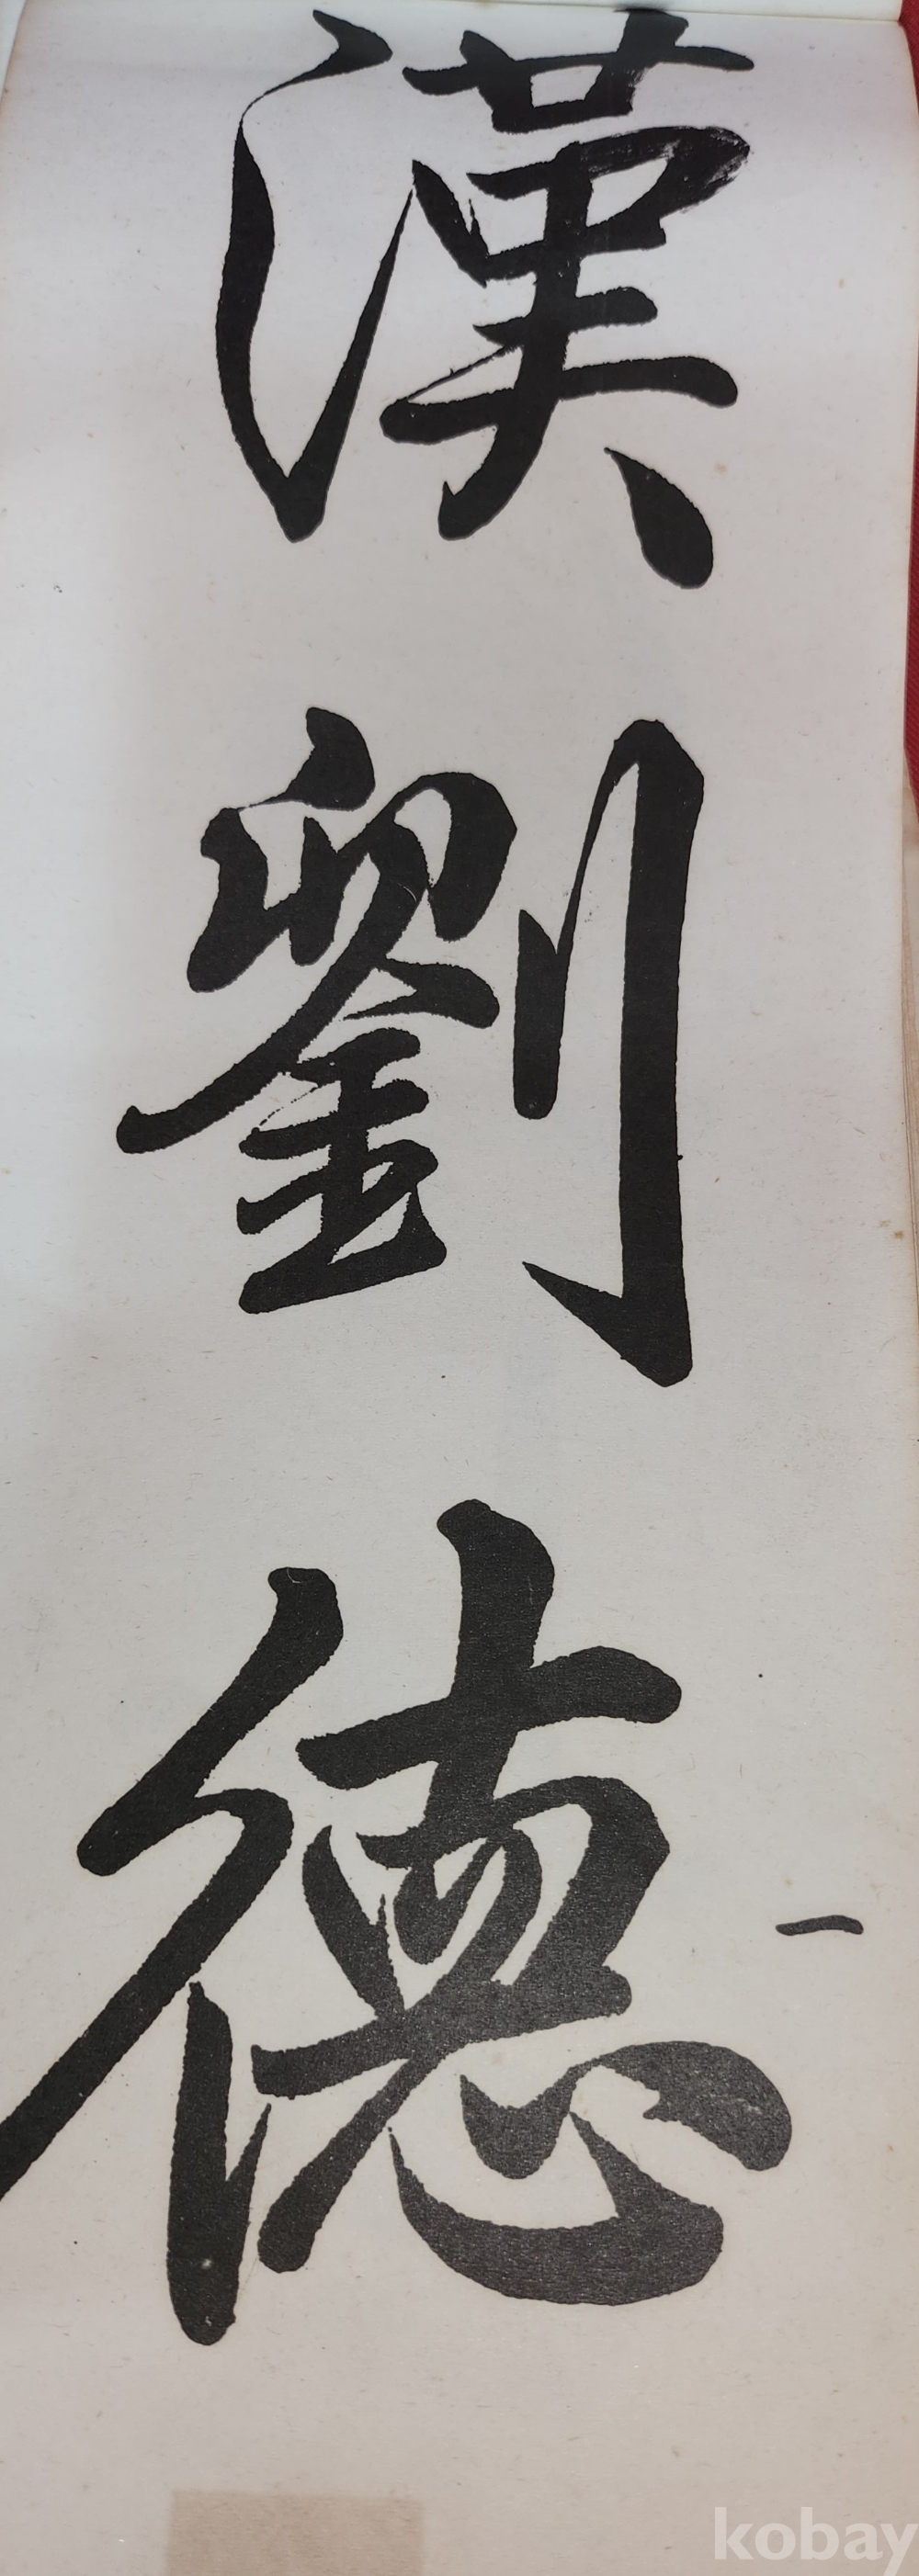 漢劉德
一
kobay